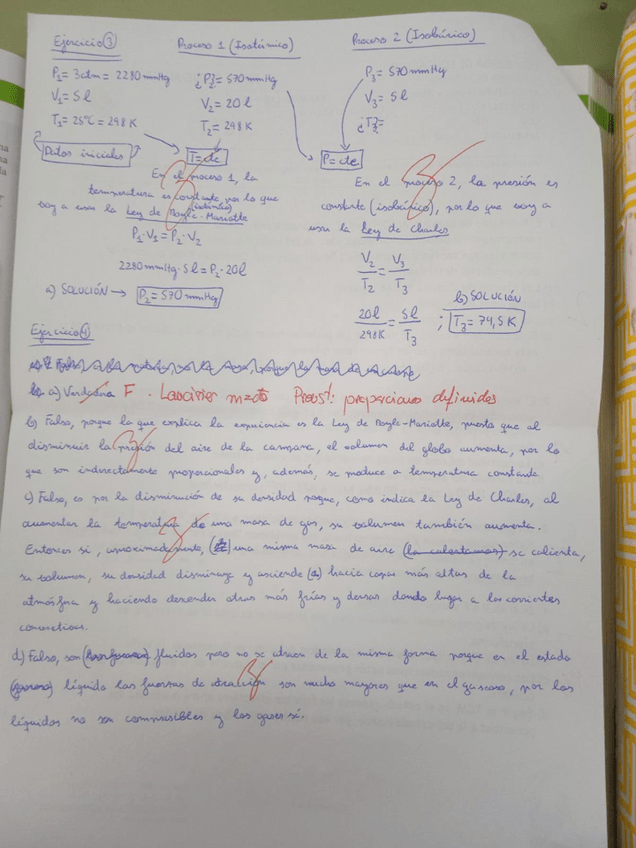 Ejercicio ③
Proceso 1 (Isotérmico)
Proceso 2 (Isobárico)
P₁ = 3 atm = 2280 mmHg
V₁ = 5 l
T₁ = 25°C = 298 K
Datos iniciales
¿P₂? = 570 mmHg
V₂ = 20 l
T₂ = 298 K
T = cte
P₃ = 570 mmHg
V₃ = 5 l
¿T₃? =
P = cte
En el proceso 1, la
temperatura es constante, por lo que
(isotérmico)
voy a usar la Ley de Boyle-Mariotte
P₁·V₁ = P₂·V₂
2280 mmHg·5 l = P₂·20 l
a) SOLUCIÓN → P₂ = 570 mmHg
En el proceso 2, la presión es
constante (isobárico), por lo que voy a
usar la Ley de Charles
V₂/T₂ = V₃/T₃
20 l/298 K = 5 l/T₃ ;
b) SOLUCIÓN
T₃ = 74,5 K
Ejercicio ④
a) Verdadera F. Lavoisier Proust: proporciones definidas
b) Falso, porque la que explica la experiencia es la Ley de Boyle-Mariotte, puesto que al
disminuir la presión del aire de la campana, el volumen del globo aumenta, por lo
que son indirectamente proporcionales y, además, se produce a temperatura constante
c) Falso, es por la disminución de su densidad porque, como indica la Ley de Charles, al
aumentar la temperatura de una masa de gas, su volumen también aumenta.
Entonces si, aproximadamente, una misma masa de aire se calienta,
su volumen, su densidad disminuye y asciende hacia capas más altas de la
atmósfera y haciendo descender otras más frías y densas dando lugar a las corrientes
convectivas.
d) Falso, son fluidos pero no se atraen de la misma forma porque en el estado
líquido las fuerzas de atracción son mucho mayores que en el gaseoso, por los
líquidos no son compresibles y los gases sí.